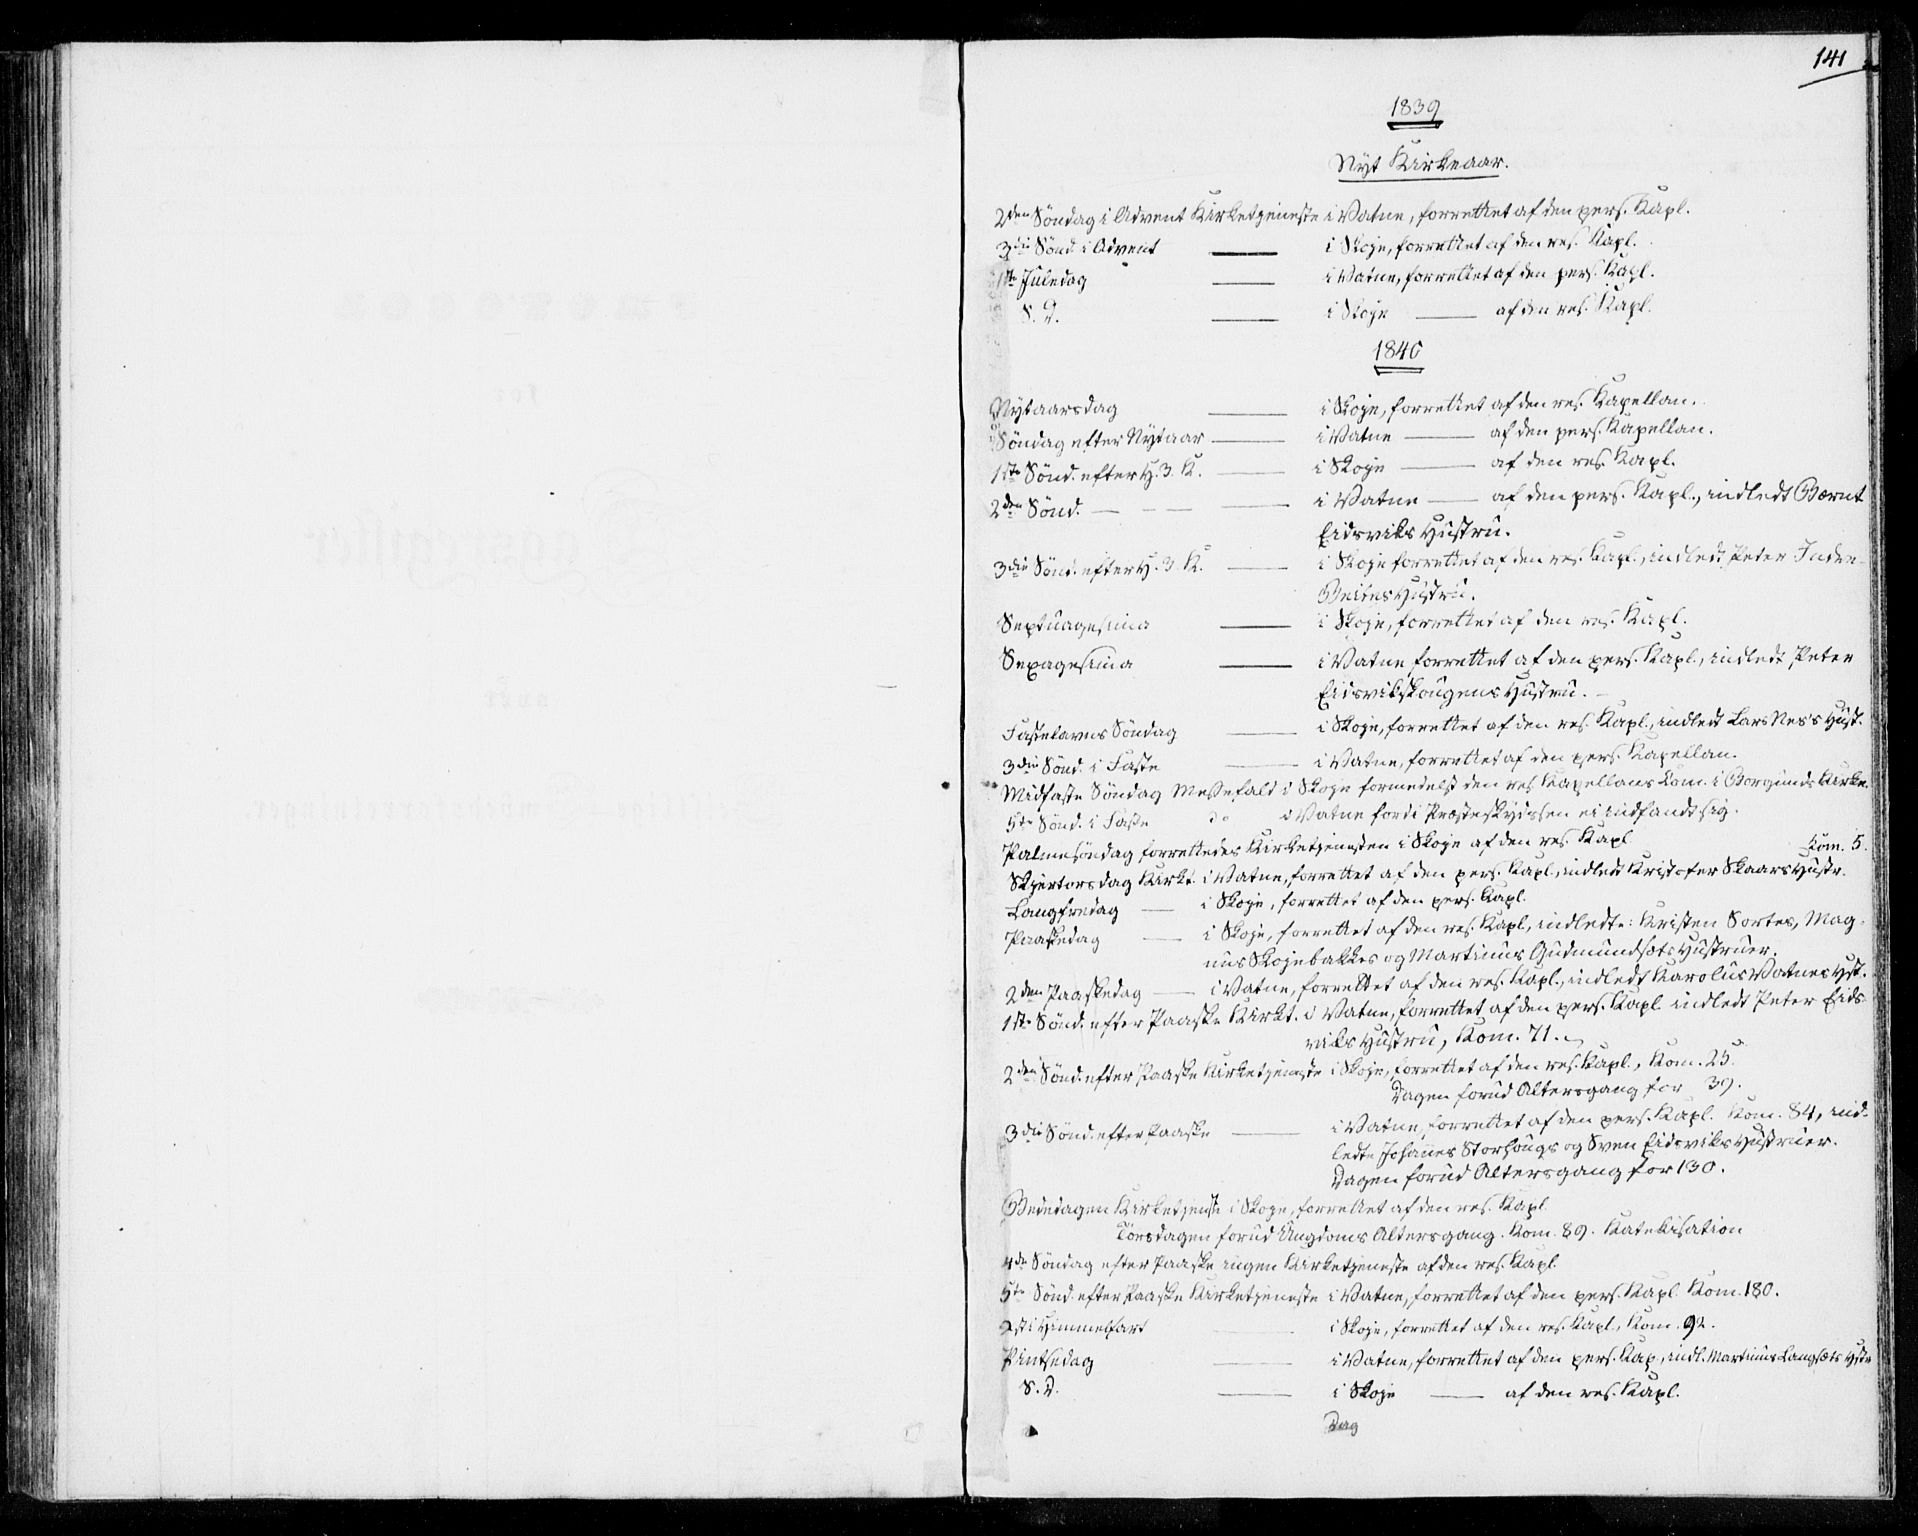 141
1839
Nyt Kirkeaar.
2den Søndag i Advent Kirketjeneste i Vatne, forrettet af den pers. Kapl.
3die Sønd. i Advent —— i Skoje, forrettet af den res. Kapl.
1ste Juledag —— i Vatne, forrettet af den pers. Kapl.
S. D. —— i Skoje —— af den res. Kapl.
1840
Nytaarsdag —— i Skoje, forrettet af den res. Kapellan.
Søndag efter Nytaar —— i Vatne —— af den pers. Kapellan.
1ste Sønd. efter H. 3. K. —— i Skoje —— af den res. Kapl.
2den Sønd. — — — —— i Vatne —— af den pers. Kapl., indledt Bernt
Eidsviks Hustru.
3die Sønd. efter H. 3 K. —— i Skoje forrettet af den res. Kapl., indledt Peter Indre-
Beites Hustru.
Septuagesima —— i Skoje, forrettet af den res. Kapl.
Sexagesima —— i Vatne forrettet af den pers. Kapl., indledt Peter
Eidsvikskougens Hustru. —
Fastelavns Søndag —— i Skoje, forrettet af den res. Kapl., indledt Lars Nes's Hust.
3die Sønd. i Faste —— i Vatne, forrettet af den pers. Kapellan.
Midfaste Søndag Messefald i Skoje formedelst den res. Kapellans Kom. i Borgunds Kirke.
5te Sønd. i Faste do i Vatne fordi Præsteskydssen ei indfandt sig.
Palmesøndag forrettedes Kirketjenesten i Skoje af den res. Kapl Kom. 5.
Skjertorsdag Kirkt. i Vatne, forrettet af den pers. Kapl., indledt Kristofer Skaars Hustr.
Langfredag —— i Skoje, forrettet af den pers. Kapl.
Paaskedag —— i Skoje, forrettet af den res. Kapl, indledte: Kristen Sortes, Mag-
nus Skojebakkes og Martinus Gudmundsets Hustruer.
2den Paaskedag —— i Vatne, forrettet af den res. Kapl., indledt Karolus Vatnes Hst.
1ste Sønd. efter Paaske Kirkt. i Vatne, forrettet af den pers. Kapl indledt Peter Eids-
viks Hustru, Kom. 71.
2den Sønd. efter Paaske Kirketjeneste i Skoje, forrettet af den res. Kapl., Kom. 25.
Dagen forud Altersgang for 39.
3die Sønd. efter Paaske —— i Vatne, forrettet af den pers. Kapl. Kom. 84, ind-
ledte Johannes Storhougs og Sven Eidsviks Hustruer.
Dagen forud Altersgang for 130.
Bededagen Kirketjenste i Skoje, forrettet af den res. Kapl.
Torsdagen forud Ungdoms Altersgang. Kom. 89. Katekisation
4de Søndag efter Paaske ingen Kirketjeneste af den res. Kapl.
5te Sønd. efter Paaske Kirketjeneste i Vatne, forrettet af den pers. Kapl. Kom. 180.
Himmelfart —— i Skoje, forrettet af den res. Kapl., Kom. 92.
Pintsedag —— i Vatne, forrettet af den pers. Kap., indl. Martinus Langsets Hstr
S. D. —— i Skoje —— af den res. Kapl.
Dag